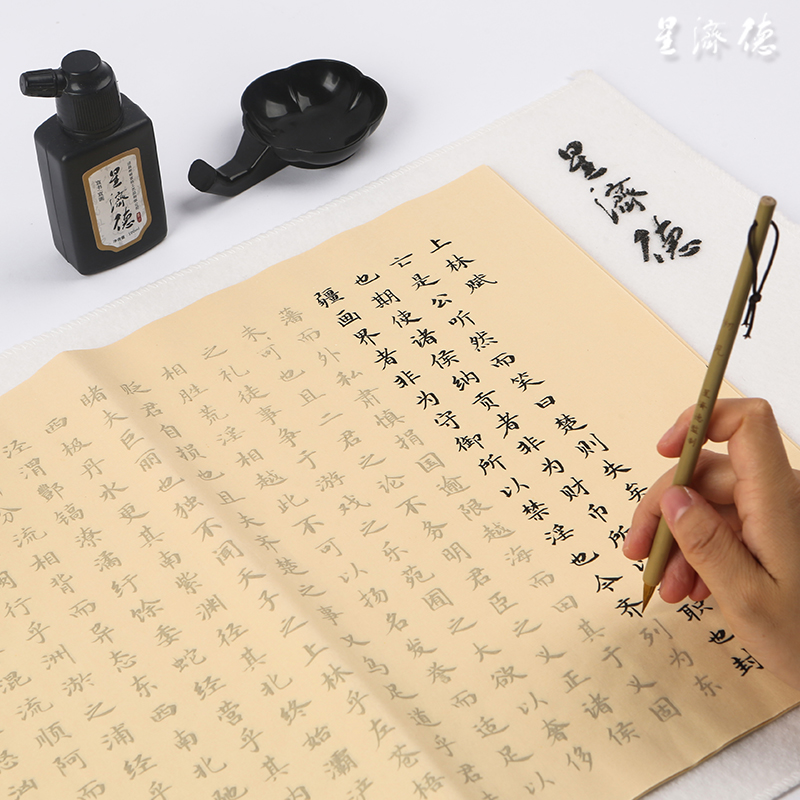 星濟德
星濟德
星濟德
上林赋
亡是公听然而笑曰楚则失矣
也期使诸侯纳贡者非为财币所以职也封
疆画界者非为守御所以禁淫也今齐列为东
藩而外私肃慎捐国逾限越海而田其于义固
未可也且二君之论不务明君臣之义正诸侯
之礼徒事争于游戏之乐苑囿之大欲以奢侈
相胜荒淫相越此不可以扬名发誉而适足以
贬君自损也且夫齐楚之事又乌足道乎
睹夫巨丽也独不闻天子之上林乎左苍梧
西极丹水更其南紫渊径其北终始灞浐
泾渭酆镐潦潏纡馀委蛇经营乎
分流相背而异态东西南北驰
行乎洲淤之浦经乎
混流顺阿而
怒汹